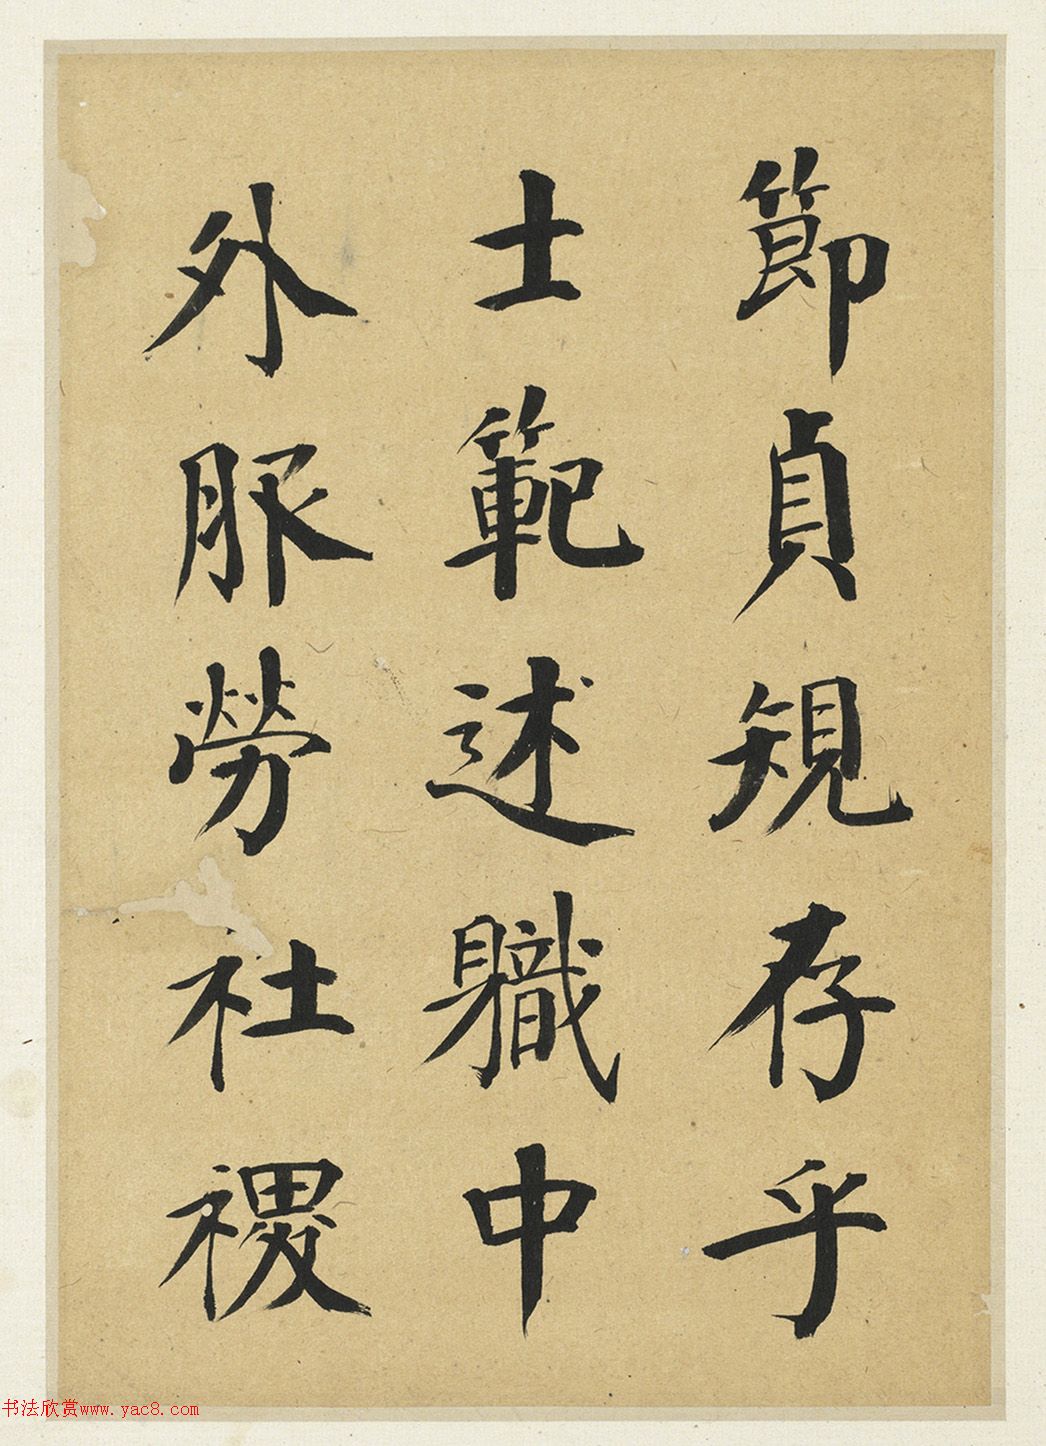 節貞規存乎
士範述職中
外服勞社稷
书法欣赏www.yac8.com